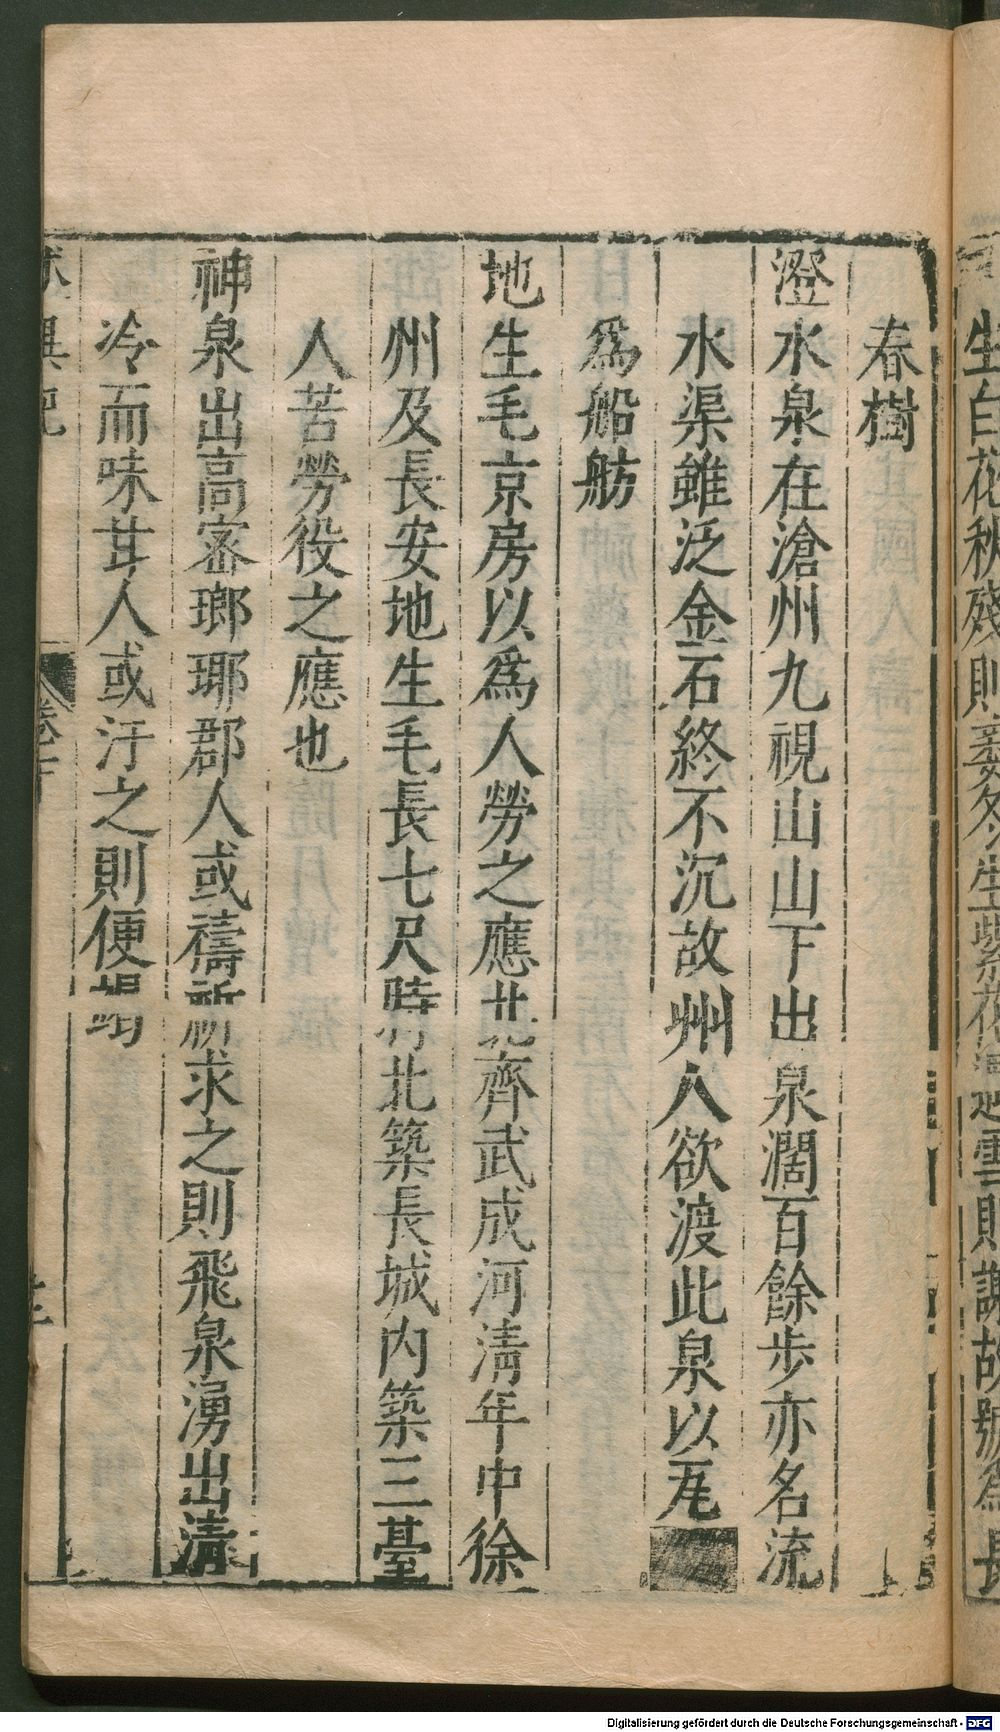 生白花秋殘則萎冬生紫花遇雪則謝故號爲長
春樹
澄水泉在滄州九視山山下出泉濶百餘步亦名流
水渠雖泛金石終不沉故州人欲渡此泉以瓦
爲船舫
地生毛京房以爲人勞之應北齊武成河清年中徐
州及長安地生毛長七尺時北築長城内築三臺
人苦勞役之應也
神泉出高密瑯琊郡人或禱祈求之則飛泉湧出清
冷而味甘人或汙之則便竭
異記
卷下
Digitalisierung gefördert durch die Deutsche Forschungsgemeinschaft - DFG